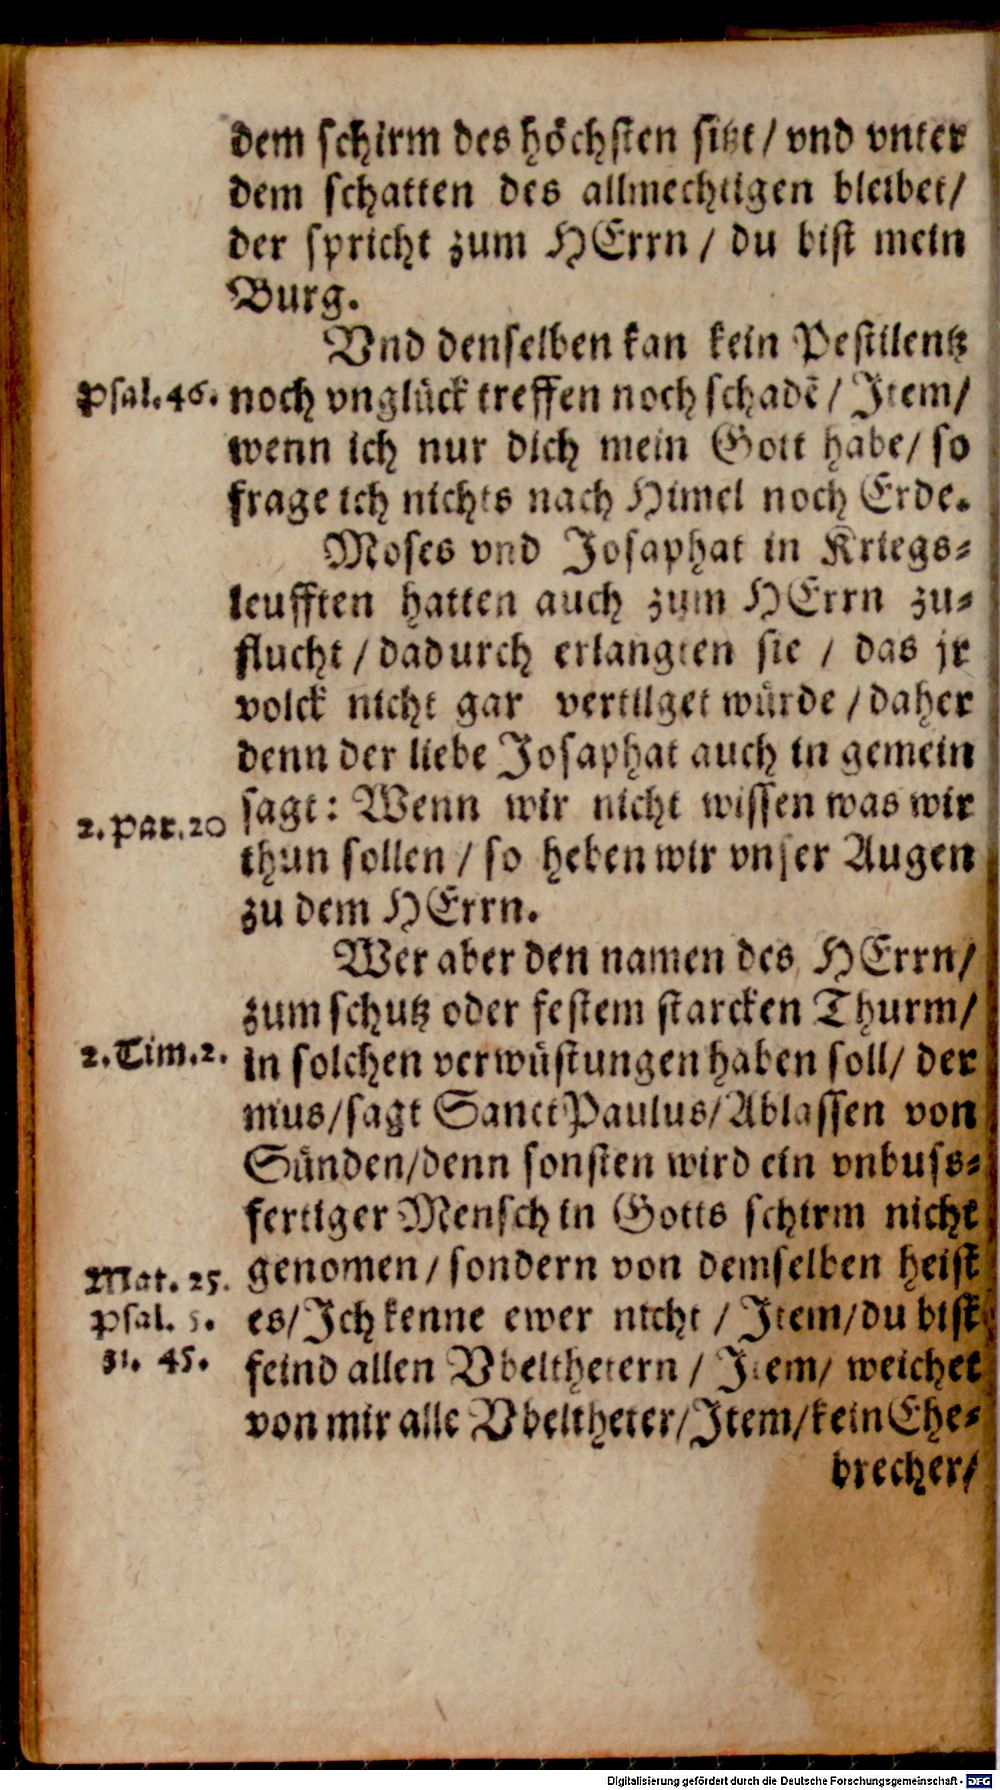 dem schirm des höchsten sitzt / vnd vnter
dem schatten des allmechtigen bleibet /
der spricht zum HErrn / du bist mein
Burg.
Vnd denselben kan kein Pestilentz
Psal. 46.
noch vnglück treffen noch schadē / Item /
wenn ich nur dich mein Gott habe / so
frage ich nichts nach Himel noch Erde.
Moses vnd Josaphat in Kriegs-
leufften hatten auch zum HErrn zu-
flucht / dadurch erlangten sie / das jr
volck nicht gar vertilget würde / daher
denn der liebe Josaphat auch in gemein
2. Par. 20
sagt: Wenn wir nicht wissen was wir
thun sollen / so heben wir vnser Augen
zu dem HErrn.
Wer aber den namen des HErrn /
zum schutz oder festem starcken Thurm /
2. Tim. 2.
in solchen verwüstungen haben soll / der
mus / sagt Sanct Paulus / Ablassen von
Sünden / denn sonsten wird ein vnbuss-
fertiger Mensch in Gotts schirm nicht
Mat. 25.
genomen / sondern von demselben heist
Psal. 5.
es / Ich kenne ewer nicht / Item / du bist
31. 45.
feind allen Vbelthetern / Item / weichet
von mir alle Vbeltheter / Item / kein Ehe-
brecher /
Digitalisierung gefördert durch die Deutsche Forschungsgemeinschaft - DFG